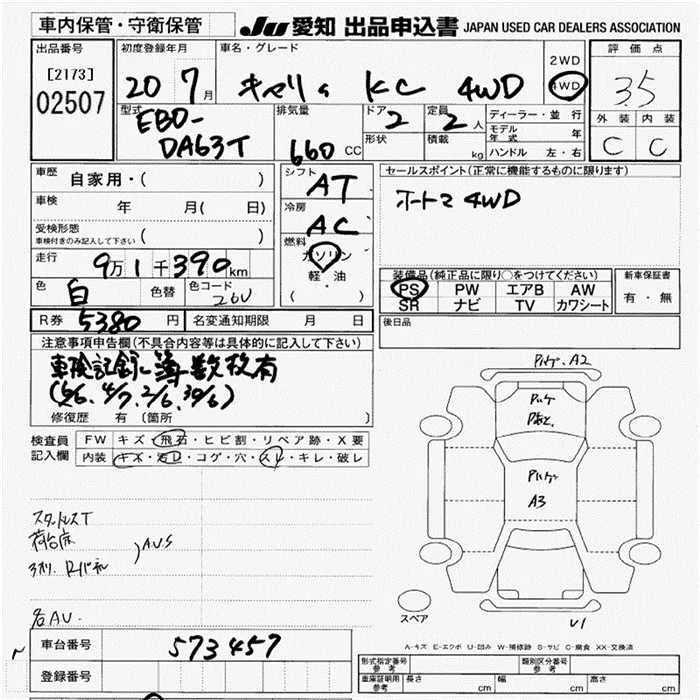 車内保管・守衛保管
JU 愛知 出品申込書 JAPAN USED CAR DEALERS ASSOCIATION
出品番号
[2173]
02507
初度登録年月
20 7月
車名・グレード
キャリィ KC 4WD
2WD
4WD
評価点
3.5
外装 内装
C C
型式
EBD-
DA63T
排気量
660 CC
ドア
2
形状
定員
2 人
積載
kg
ディーラー・並行
モデル年式 年
ハンドル 左・右
車歴 自家用・( )
車検 年 月( 日)
受検形態
車検付きのみ記入して下さい ( )
走行 9万1千390km
色 白 色替 色コード 26U
R券 5380円 名変通知期限 月 日
シフト
AT
冷房
AC
燃料
ガソリン
軽・油
( )
セールスポイント(正常に機能するものに限ります)
4WD
装備品(純正品に限り○をつけてください)
PS PW エアB AW
SR ナビ TV カワシート
新車保証書
有・無
後日品
注意事項申告欄(不具合内容等は具体的に記入して下さい)
車検記録簿数枚有
修復歴 有 〔箇所 〕
検査員記入欄
FW キズ・飛石・ヒビ割・リペア跡・X要
内装 キズ・汚レ・コゲ・穴・スレ・キレ・破レ
スタッドレスT
荷台床
A,U,S
各AU.
A2
A3
U1
スペア
A-キズ E-エクボ U-凹み W-補修跡 S-サビ C-腐食 XX-交換済
車台番号 573457
登録番号
型式指定番号 参考
類別区分番号 参考
車庫証明用 参考 長さ cm 幅 cm 高さ cm